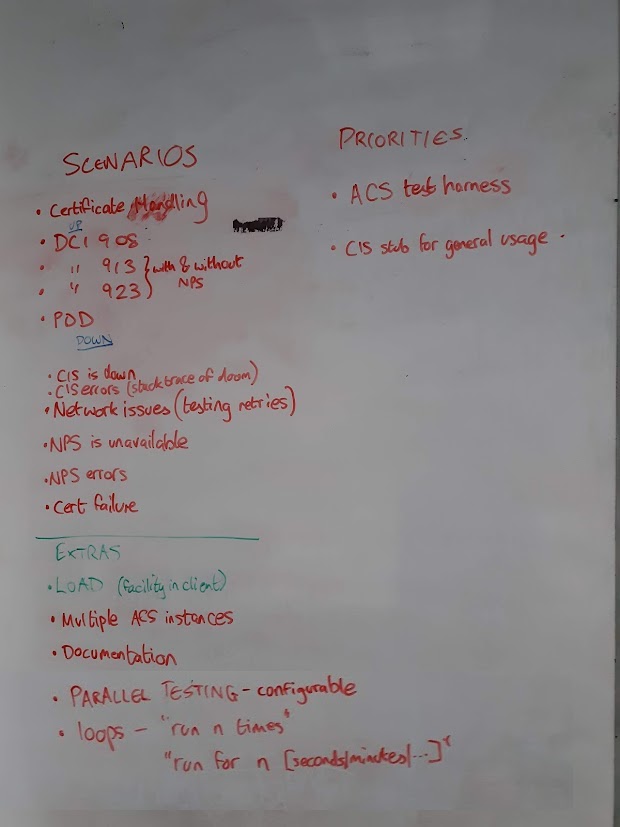 SCENARIOS
• Certificate Handling
UP
• DCI 908
• " 913 } with & without
• " 923 } NPS
• POD
DOWN
• CIS is down
• CIS errors (stack trace of doom)
• Network issues (testing retries)
• NPS is unavailable
• NPS errors
• Cert failure
EXTRAS
• LOAD (facility in client)
• Multiple ACS instances
• Documentation
• PARALLEL TESTING - configurable
• loops - "run n times"
"run for n [seconds/minutes/...]"
PRIORITIES
• ACS test harness
• CIS stub for general usage.